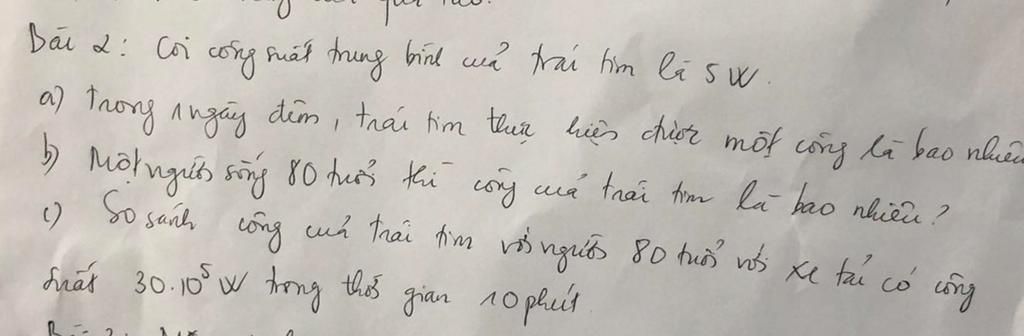 Bài 2: Coi công suất trung bình của trái tim là 5 W.
a) Trong 1 ngày đêm, trái tim thực hiện được một công là bao nhiêu
b) Một người sống 80 tuổi thì công của trái tim là bao nhiêu?
c) So sánh công của trái tim với người 80 tuổi với xe tải có công
suất 30.10⁵ W trong thời gian 10 phút